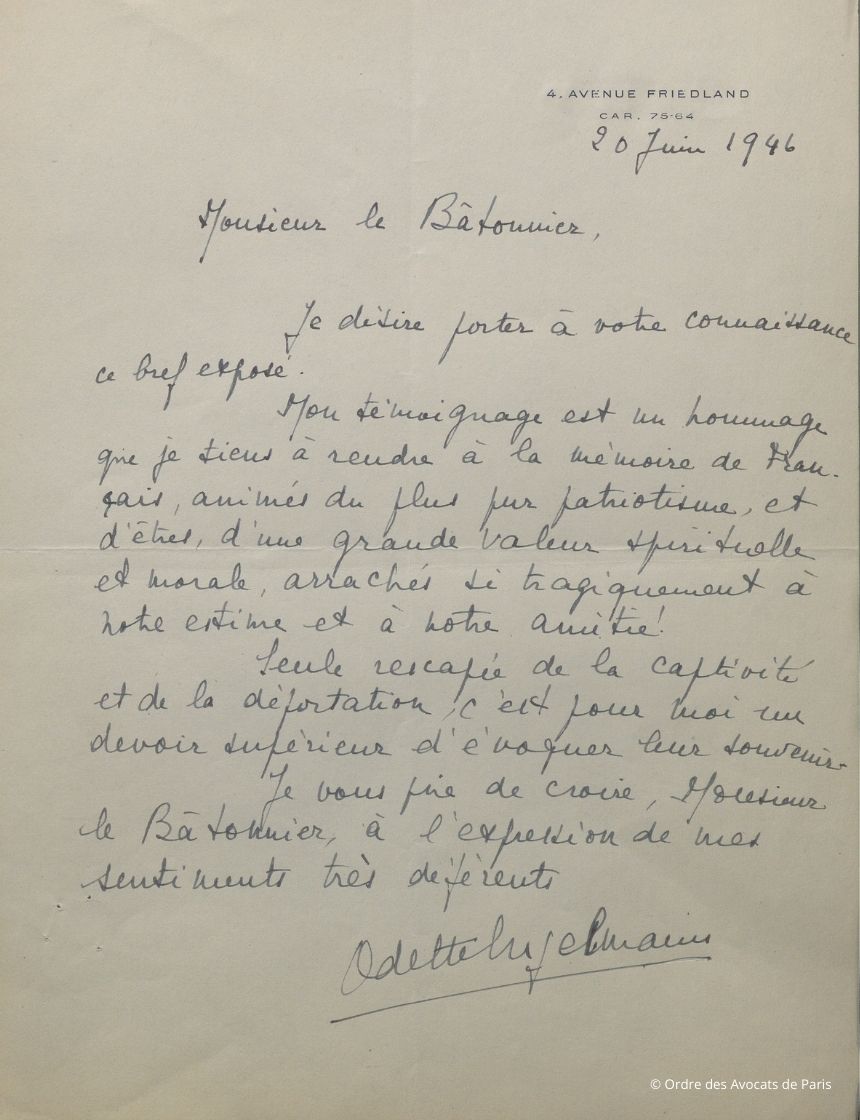 4, AVENUE FRIEDLAND
CAR. 75-64
20 Juin 1946
Monsieur le Bâtonnier,
Je désire porter à votre connaissance
ce bref exposé.
Mon témoignage est un hommage
que je tiens à rendre à la mémoire de Fran-
çais, animés du plus pur patriotisme, et
d'êtres, d'une grande valeur spirituelle
et morale, arrachés si tragiquement à
notre estime et à notre amitié!
Seule rescapée de la captivité
et de la déportation, c'est pour moi un
devoir supérieur d'évoquer leur souvenir.
Je vous prie de croire, Monsieur
le Bâtonnier, à l'expression de mes
sentiments très déférents
Odette
© Ordre des Avocats de Paris